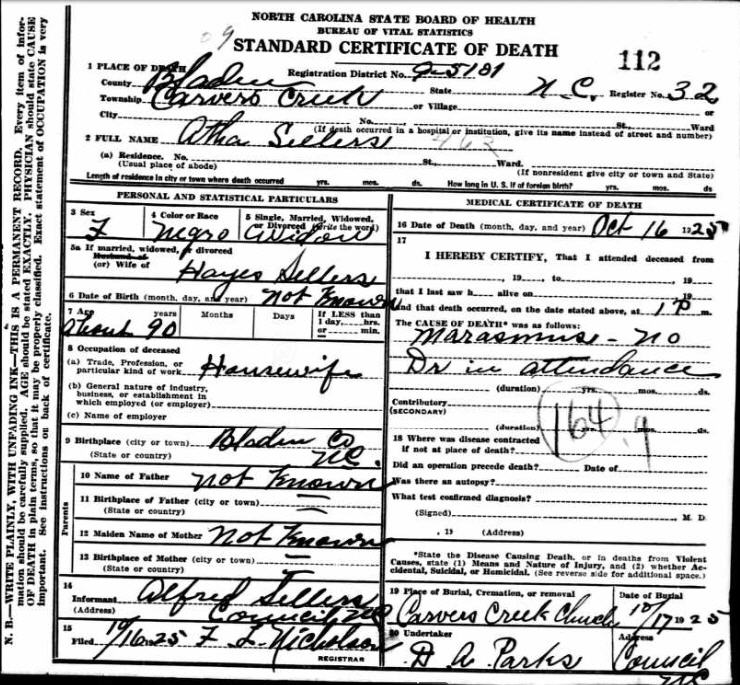 NORTH CAROLINA STATE BOARD OF HEALTH
BUREAU OF VITAL STATISTICS
STANDARD CERTIFICATE OF DEATH
112
09
1 PLACE OF DEATH
Registration District No. 9-5181
County Bladen State N.C. Register No. 32
Township Carvers Creek or Village or
City No. St., Ward
(If death occurred in a hospital or institution, give its name instead of street and number)
2 FULL NAME Atha Sellers 462
(a) Residence. No. St., Ward.
(Usual place of abode) (If nonresident give city or town and State)
Length of residence in city or town where death occurred yrs. mos. ds. How long in U. S. if of foreign birth? yrs. mos. ds.
PERSONAL AND STATISTICAL PARTICULARS
3 Sex 4 Color or Race 5 Single, Married, Widowed, or Divorced (write the word)
F Negro Widow
5a If married, widowed, or divorced
Husband of
(or) Wife of Hayes Sellers
6 Date of Birth (month, day, and year) Not Known
7 Age years Months Days If LESS than
1 day, hrs.
or min.
About 90
8 Occupation of deceased
(a) Trade, Profession, or
particular kind of work Housewife
(b) General nature of industry,
business, or establishment in
which employed (or employer)
(c) Name of employer
9 Birthplace (city or town) Bladen Co
(State or country) NC.
Parents
10 Name of Father Not Known
11 Birthplace of Father (city or town) =
(State or country)
12 Maiden Name of Mother Not Known
13 Birthplace of Mother (city or town) —
(State or country)
14
Informant Alfred Sellers
(Address) Council NC
15
Filed 10/16 1925 F. L. Nicholson
REGISTRAR
MEDICAL CERTIFICATE OF DEATH
16 Date of Death (month, day, and year) Oct 16 1925
17
I HEREBY CERTIFY, That I attended deceased from
, 19 , to , 19
that I last saw h alive on , 19
and that death occurred, on the date stated above, at 1 P m.
The CAUSE OF DEATH* was as follows:
Marasmuse - no
Dr in attendance
(duration) yrs. mos. ds.
Contributory
(SECONDARY)
(duration) yrs. mos. ds.
164 9
18 Where was disease contracted
if not at place of death?
Did an operation precede death? Date of
Was there an autopsy?
What test confirmed diagnosis?
(Signed) M. D.
, 19 (Address)
*State the Disease Causing Death, or in deaths from Violent
Causes, state (1) Means and Nature of Injury, and (2) whether Accidental, Suicidal, or Homicidal. (See reverse side for additional space.)
19 Place of Burial, Cremation, or removal Date of Burial
Carvers Creek Church 10/17 1925
20 Undertaker Address
D A Parks Council
NC
N. B.—WRITE PLAINLY, WITH UNFADING INK—THIS IS A PERMANENT RECORD. Every item of information should be carefully supplied. AGE should be stated EXACTLY. PHYSICIAN should state CAUSE
OF DEATH in plain terms, so that it may be properly classified. Exact statement of OCCUPATION is very
important. See instructions on back of certificate.